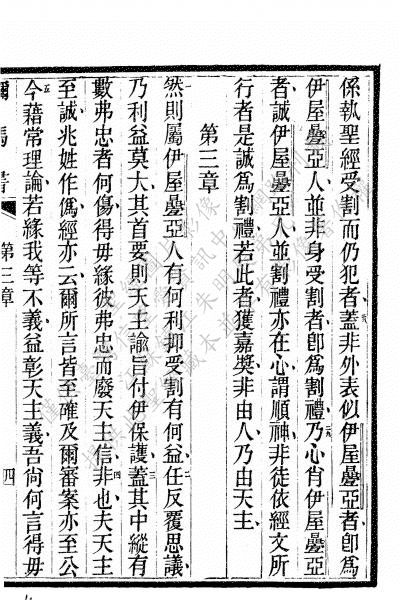 係執聖經受割而仍犯者蓋非外表似伊屋疉亞者卽爲
伊屋疉亞人並非身受割者卽爲割禮乃心肖伊屋疉亞
者誠伊屋疉亞人並割禮亦在心謂順神非徒依經文所
行者是誠爲割禮若此者獲嘉奬非由人乃由天主
第三章
然則屬伊屋疉亞人有何利抑受割有何益任反覆思議
乃利益莫大其首要則天主諭旨付伊保護蓋其中縱有
數弗忠者何傷得毋緣彼弗忠而廢天主信非也夫天主
至誠兆姓作僞經亦云爾所言皆至確及爾審案亦至公
今藉常理論若緣我等不義益彰天主義吾尙何言得毋
第三章
四